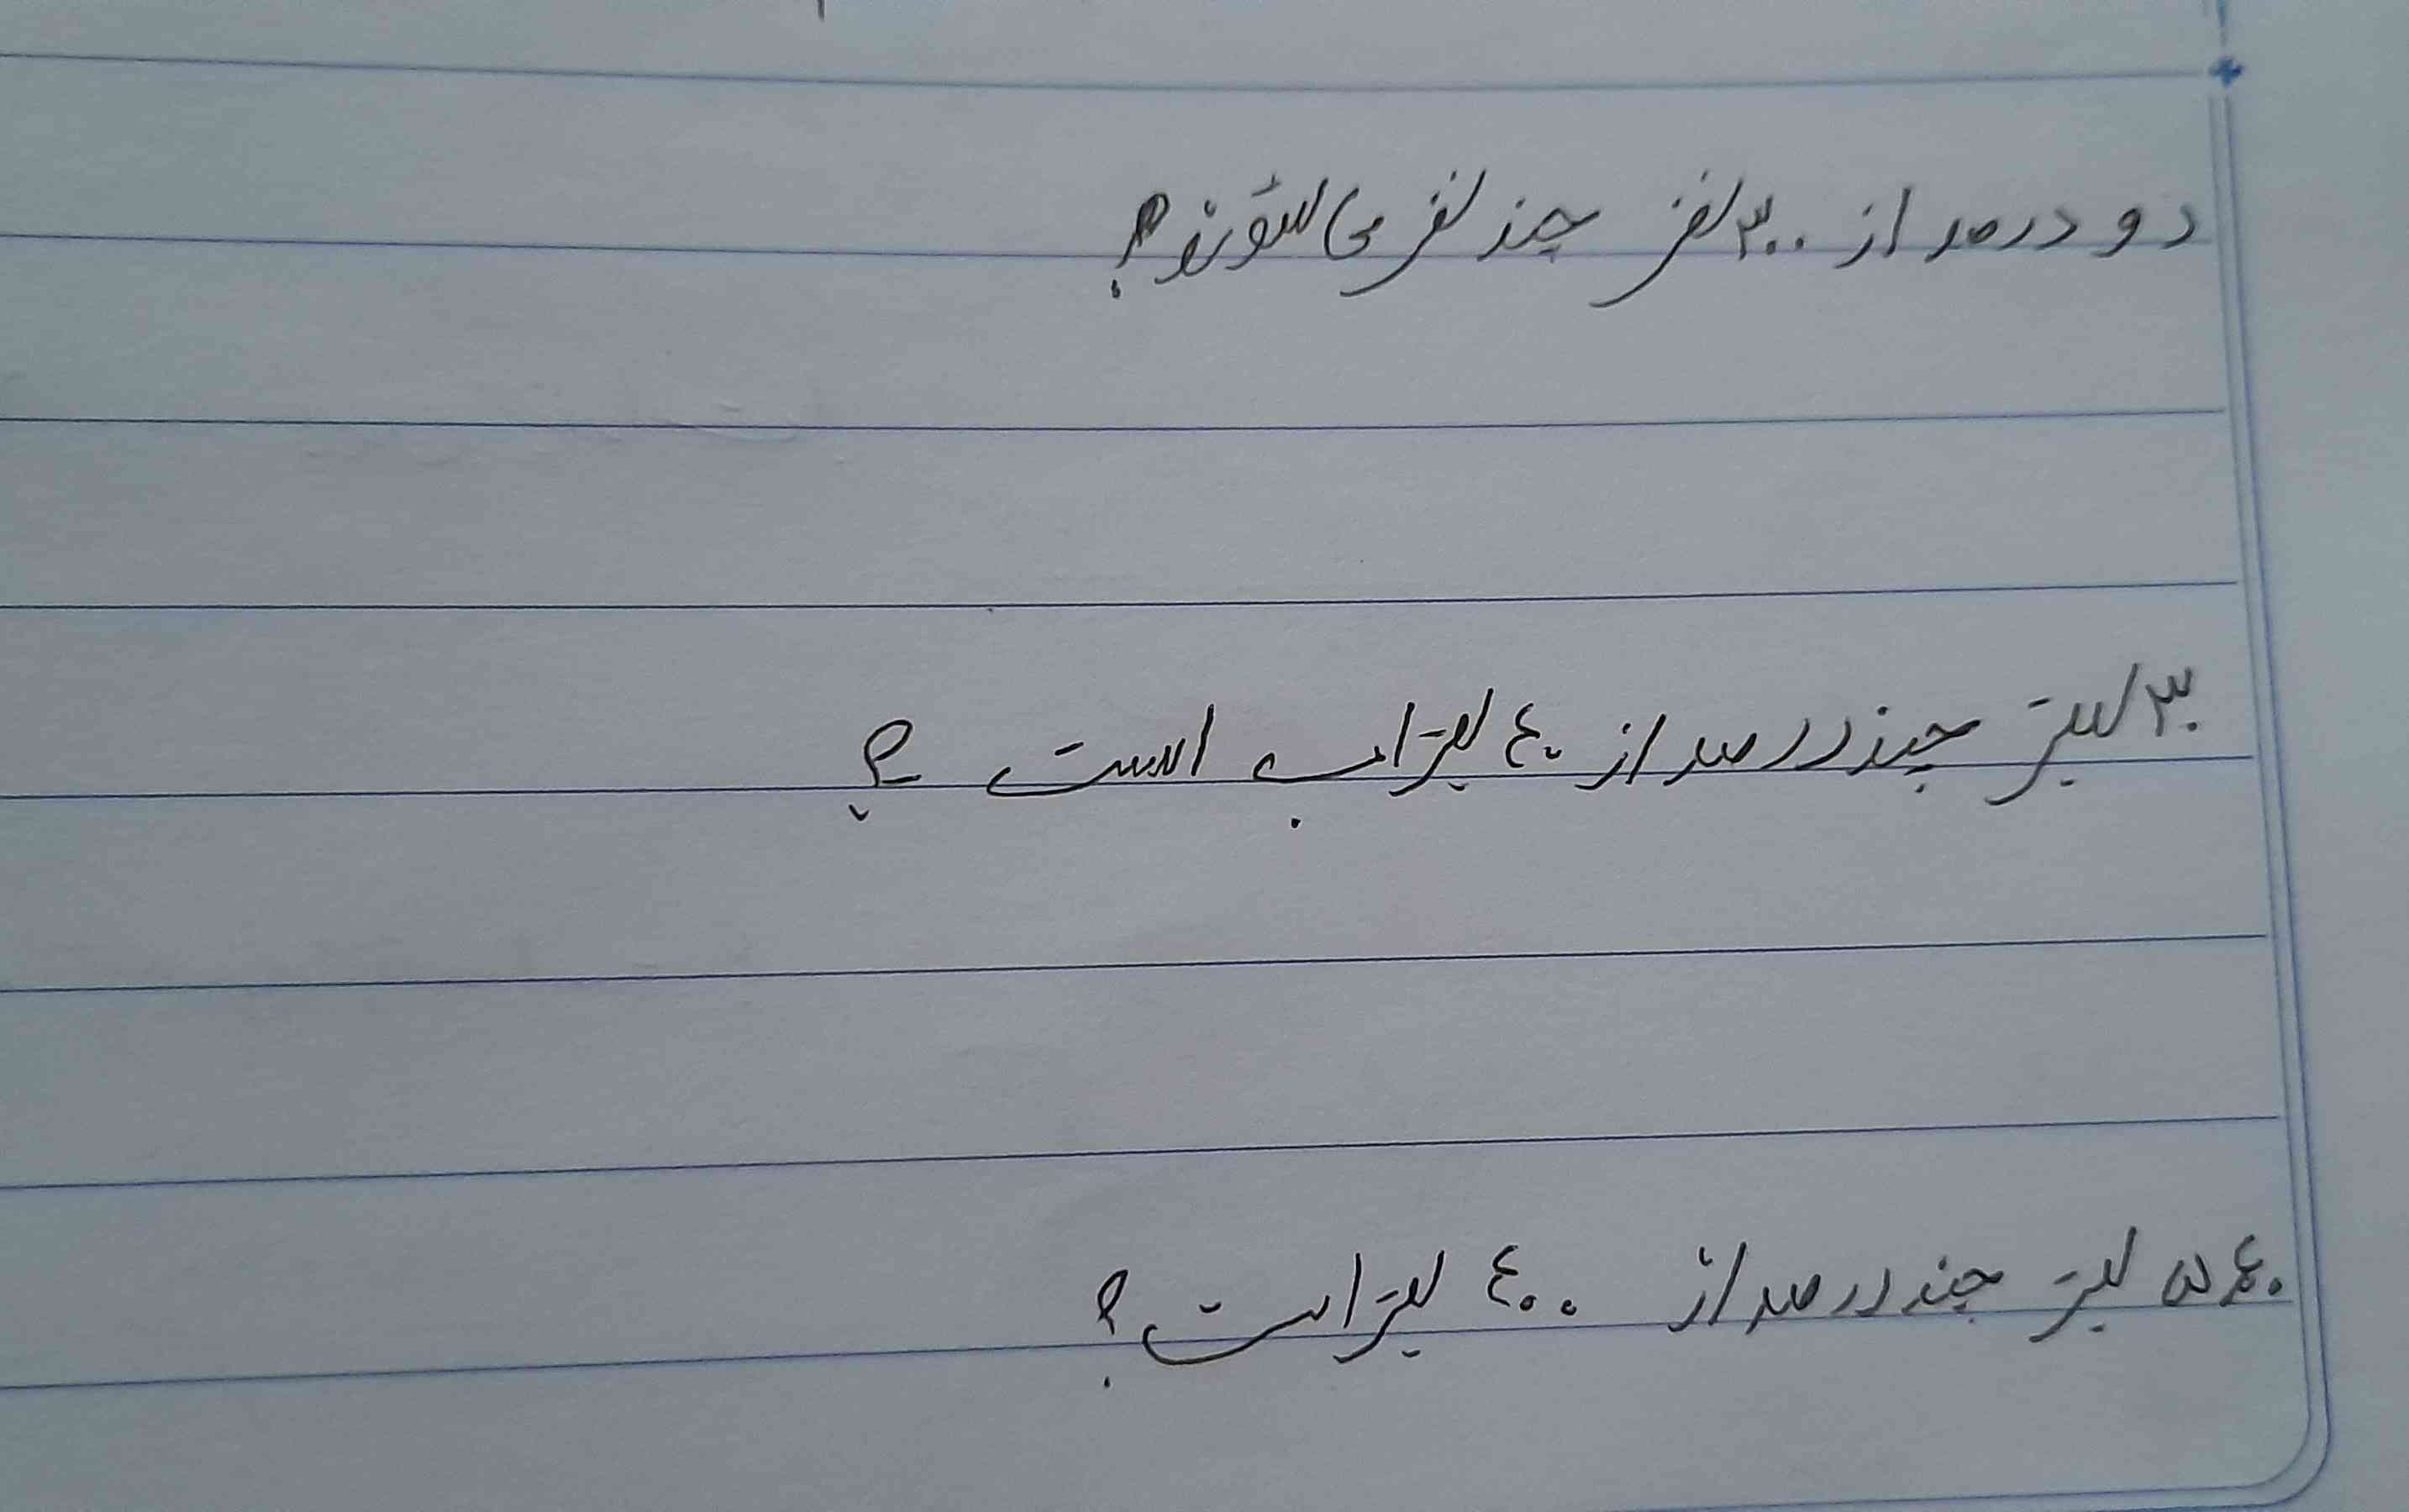 دو درصد از ۳۰۰ نفر چند نفر می شوند؟
۳۰ لیتر چند درصد از ۴۰ لیتر آب است ؟
۵۴۰ لیتر چند درصد از ۴۰۰ لیتر است؟